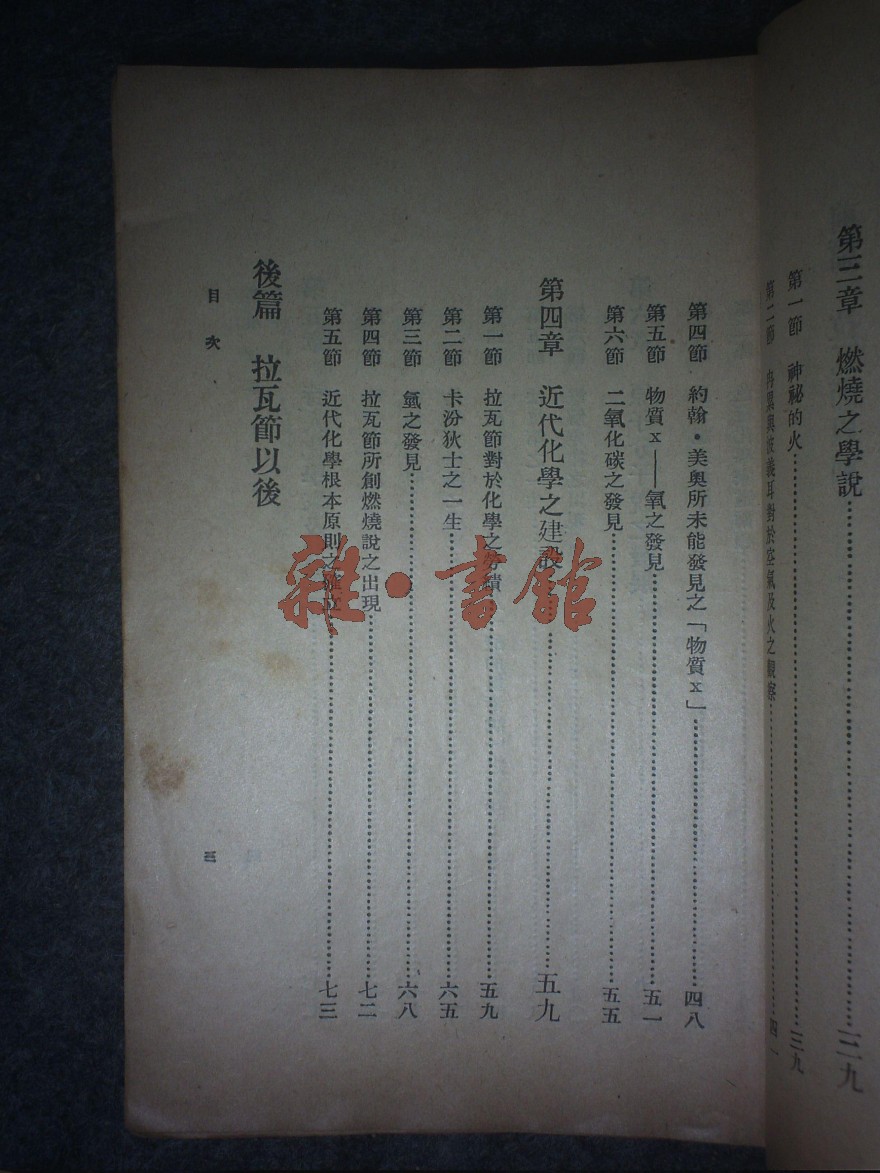 第三章　燃燒之學說……三九
第一節　神祕的火……三九
第二節　冉異與波義耳對於空氣及火之觀察……四一
第四節　約翰・美奧所未能發見之「物質x」……四八
第五節　物質x——氧之發見……五一
第六節　二氧化碳之發見……五五
第四章　近代化學之建設……五九
第一節　拉瓦節對於化學之勞績……五九
第二節　卡汾狄士之一生……六五
第三節　氫之發見……六八
第四節　拉瓦節所創燃燒說之出現……七二
第五節　近代化學根本原則之確立……七三
後篇　拉瓦節以後
目次
三
雜・書館